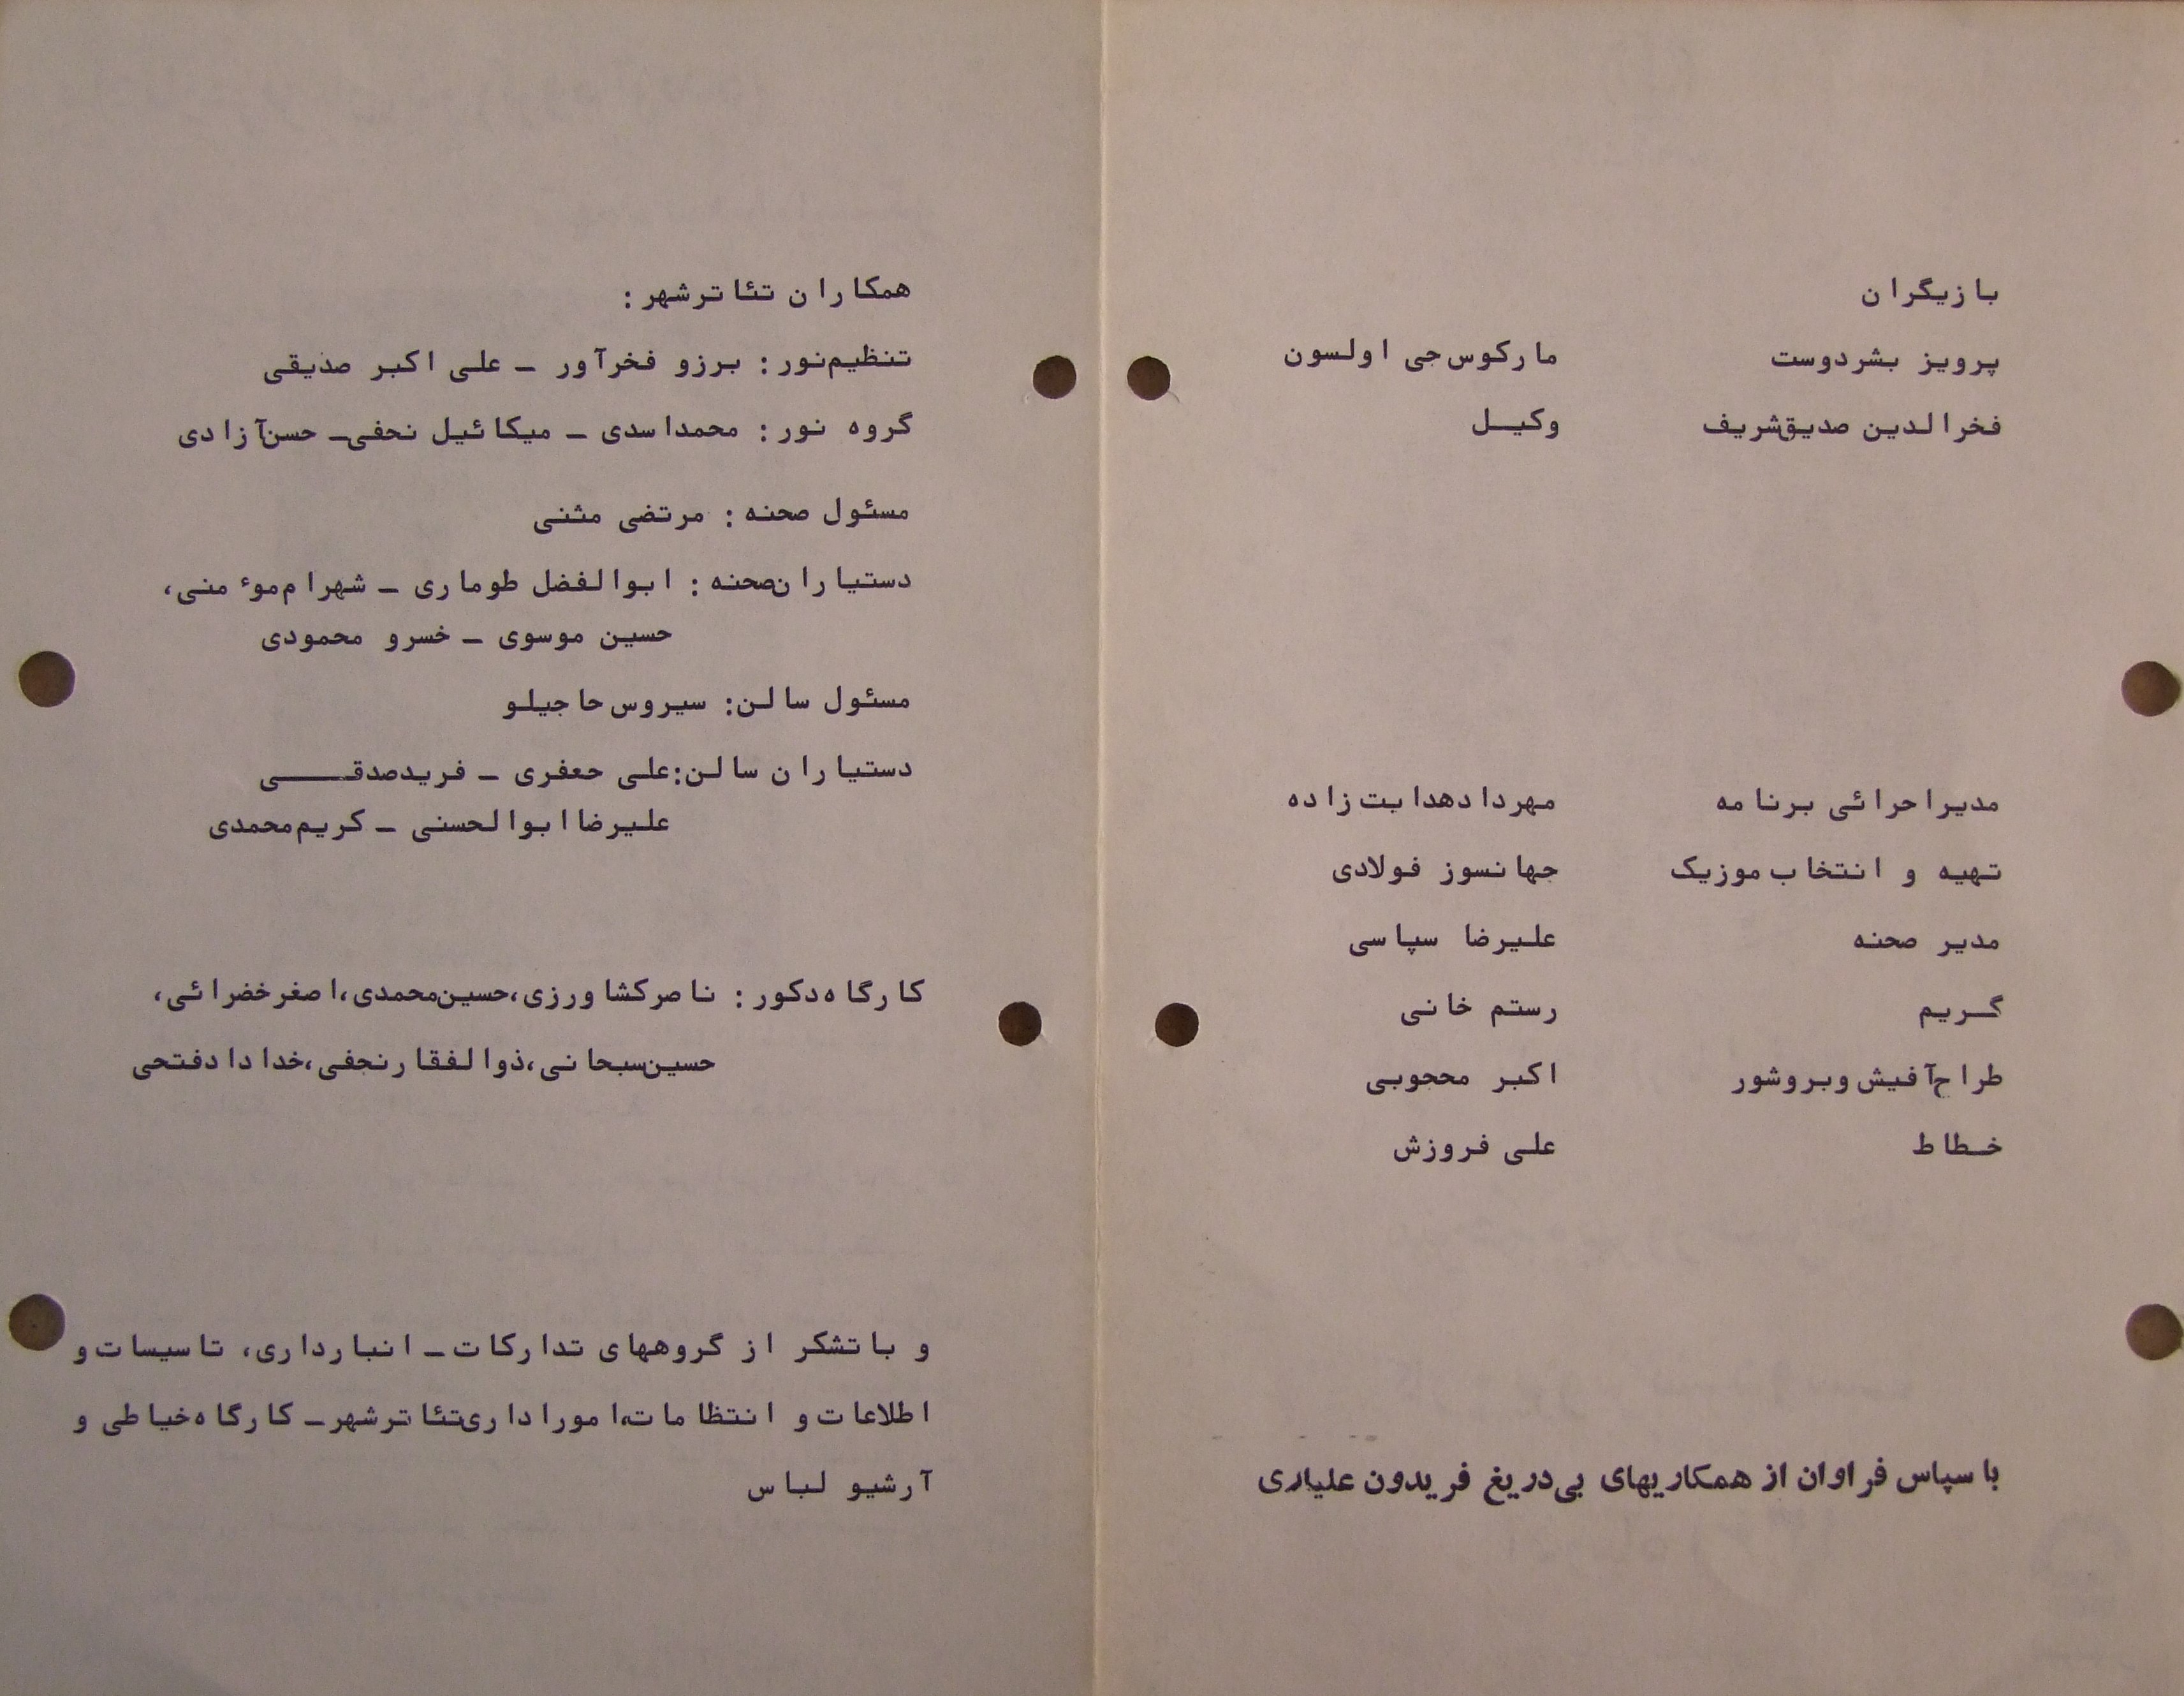 بازیگران
پرویز بشردوست مارکوس جی اولسون
فخرالدین صدیق‌شریف وکیل
مدیراجرائی برنامه مهرداد هدایت زاده
تهیه و انتخاب موزیک جهانسوز فولادی
مدیر صحنه علیرضا سپاسی
گریم رستم خانی
طراح آفیش وبروشور اکبر محجوبی
خطاط علی فروزش
با سپاس فراوان از همکاریهای بی‌دریغ فریدون علیاری
همکاران تئاترشهر :
تنظیم‌نور : برزو فخرآور – علی اکبر صدیقی
گروه نور : محمداسدی – میکائیل نجفی – حسن‌آزادی
مسئول صحنه : مرتضی مثنی
دستیاران صحنه : ابوالفضل طوماری – شهرام‌موٴمنی،
حسین موسوی – خسرو محمودی
مسئول سالن: سیروس حاجیلو
دستیاران سالن: علی جعفری – فریدصدقی
علیرضا ابوالحسنی – کریم‌محمدی
کارگاه دکور : ناصرکشاورزی، حسین‌محمدی، اصغرخضرائی،
حسین‌سبحانی، ذوالفقارنجفی، خدادادفتحی
و باتشکر از گروههای تدارکات – انبارداری، تاسیسات و
اطلاعات و انتظامات، اموراداری‌تئاترشهر – کارگاه خیاطی و
آرشیو لباس